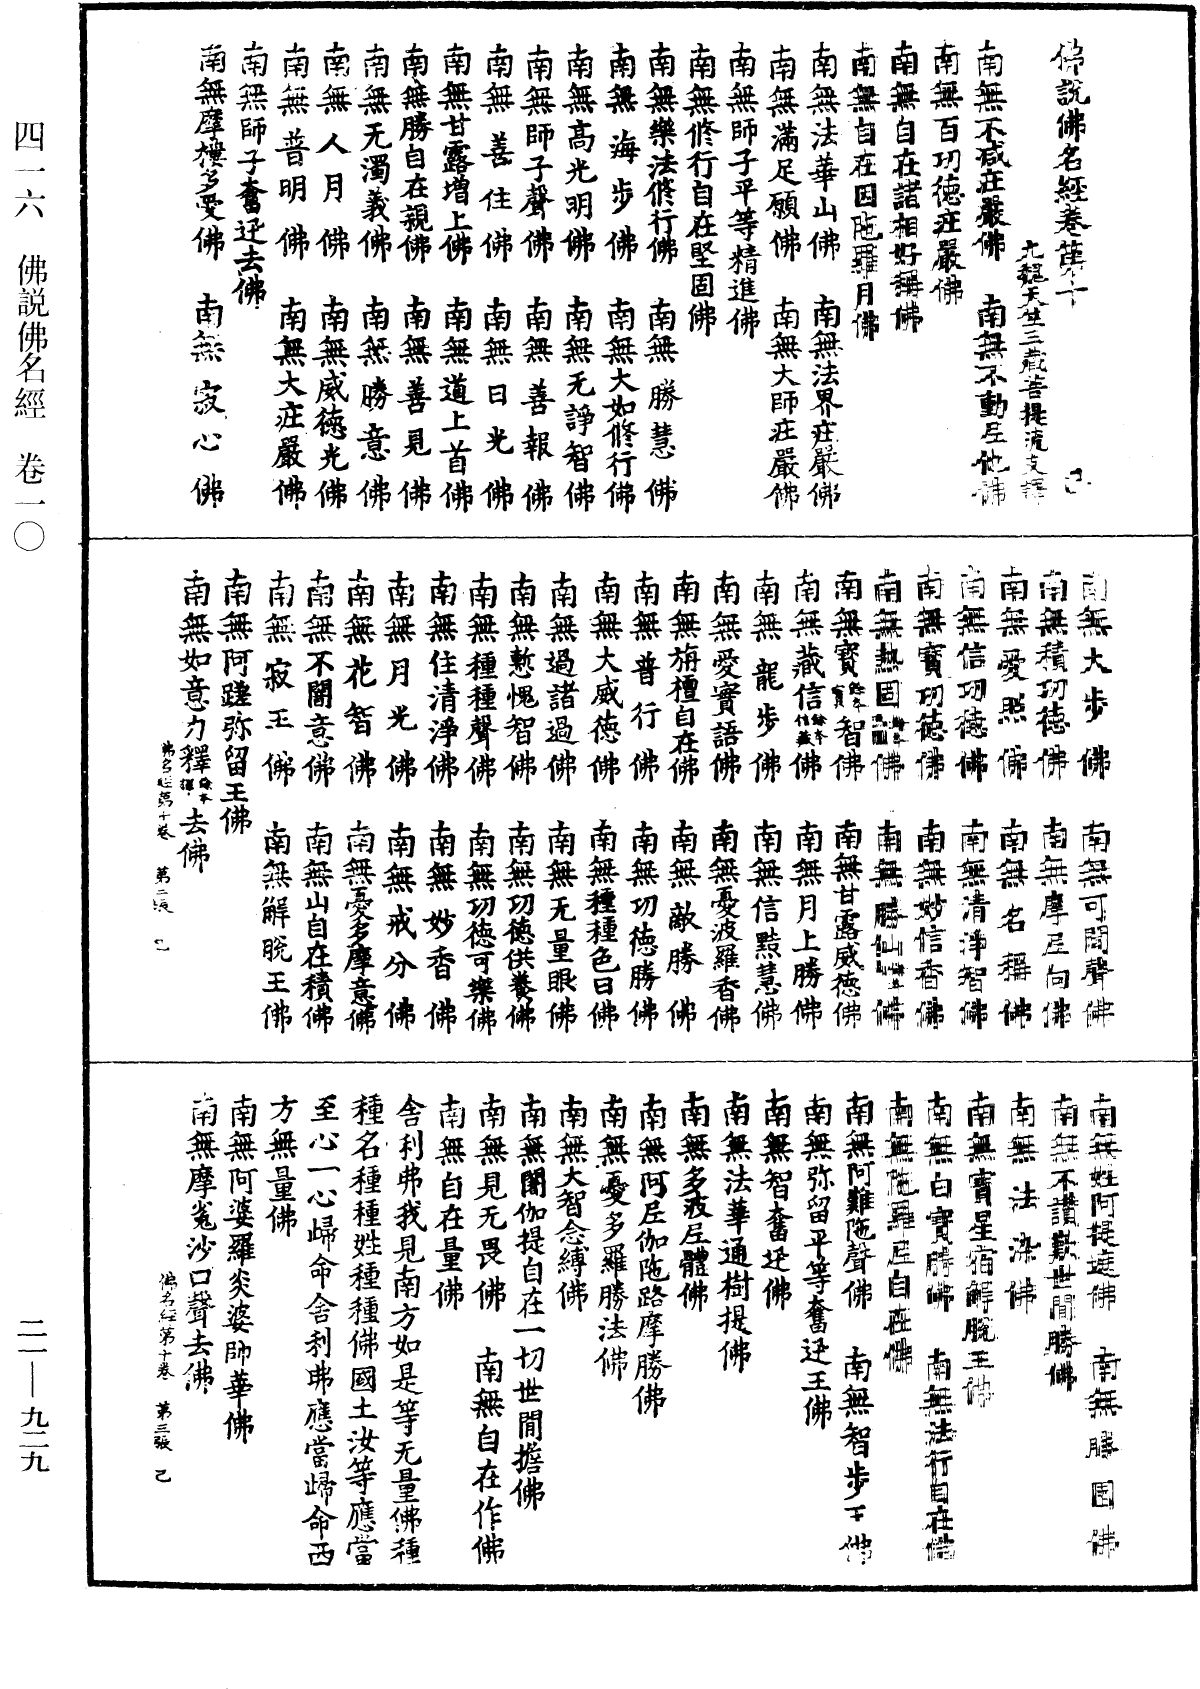 佛說佛名經卷第十
元魏天竺三藏菩提流支譯 己
南無不減莊嚴佛 南無不動尼他佛
南無百功德莊嚴佛
南無自在諸相好稱佛
南無自在因陁羅月佛
南無法華山佛 南無法界莊嚴佛
南無滿足願佛 南無大師莊嚴佛
南無師子平等精進佛
南無修行自在堅固佛
南無樂法修行佛 南無勝慧佛
南無海步佛 南無大如修行佛
南無高光明佛 南無无諍智佛
南無師子聲佛 南無善報佛
南無善住佛 南無日光佛
南無甘露增上佛 南無道上首佛
南無勝自在親佛 南無善見佛
南無无濁義佛 南無勝意佛
南無人月佛 南無威德光佛
南無普明佛 南無大莊嚴佛
南無師子奮迅去佛
南無摩樓多愛佛 南無寂心佛
南無大步佛 南無可聞聲佛
南無積功德佛 南無摩尼向佛
南無愛照佛 南無名稱佛
南無信功德佛 南無清淨智佛
南無寶功德佛 南無妙信香佛
南無熱固佛 南無勝仙佛
南無寶智佛 南無甘露威德佛
南無藏信餘本信藏佛 南無月上勝佛
南無龍步佛 南無信點慧佛
南無愛實語佛 南無憂波羅香佛
南無旃檀自在佛 南無敵勝佛
南無普行佛 南無功德勝佛
南無大威德佛 南無種種色日佛
南無過諸過佛 南無无量眼佛
南無慙愧智佛 南無功德供養佛
南無種種聲佛 南無功德可樂佛
南無住清淨佛 南無妙香佛
南無月光佛 南無戒分佛
南無花智佛 南無憂多摩意佛
南無不闇意佛 南無山自在積佛
南無寂王佛 南無解脫王佛
南無阿蹉弥留王佛
南無如意力釋去佛
佛名經第十卷 第二張 己
南無姓阿提遮佛 南無勝固佛
南無不讚歎世間勝佛
南無法染佛
南無寶星宿解脫王佛
南無白寶勝佛 南無法行自在佛
南無陁羅尼自在佛
南無阿難陁聲佛 南無智步王佛
南無弥留平等奮迅王佛
南無智奮迅佛
南無法華通樹提佛
南無多波尼體佛
南無阿尼伽陁路摩勝佛
南無憂多羅勝法佛
南無大智念縛佛
南無闍伽提自在一切世間擔佛
南無見无畏佛 南無自在作佛
南無自在量佛
舍利弗我見南方如是等无量佛種
種名種種姓種種佛國土汝等應當
至心一心歸命舍利弗應當歸命西
方無量佛
南無阿婆羅炎婆師華佛
南無摩㝹沙口聲去佛
佛名經第十卷 第三張 己
四一六 佛説佛名經 卷一〇
二一—九二九